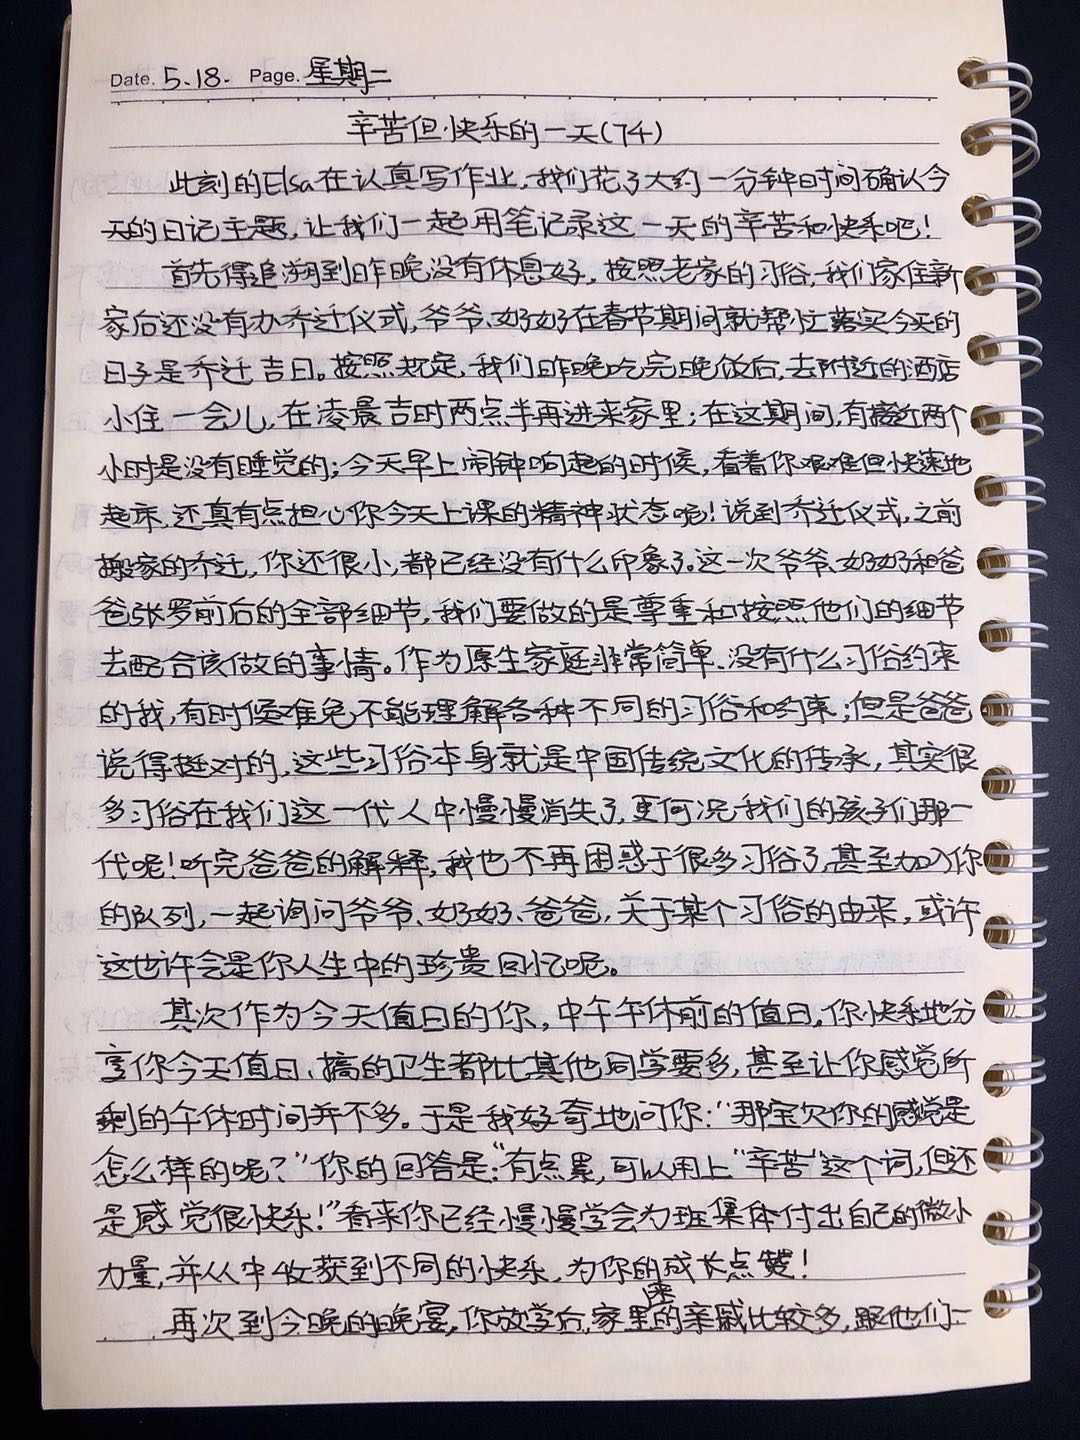 Date. 5.18. Page. 星期二
辛苦但快乐的一天(74)
此刻的Elsa在认真写作业,我们花了大约一分钟时间确认今
天的日记主题,让我们一起用笔记录这一天的辛苦和快乐吧!
首先得追溯到昨晚没有休息好。按照老家的习俗,我们家住新
家后还没有办乔迁仪式,爷爷、奶奶在春节期间就帮忙落实今天的
日子是乔迁吉日。按照规定,我们昨晚吃完晚饭后,去附近的酒店
小住一会儿,在凌晨吉时两点半再进来家里;在这期间,有接近两个
小时是没有睡觉的;今天早上闹钟响起的时候,看着你艰难但快速地
起床,还真有点担心你今天上课的精神状态呢!说到乔迁仪式,之前
搬家的乔迁,你还很小,都已经没有什么印象了。这一次爷爷、奶奶和爸
爸张罗前后的全部细节,我们要做的是尊重和按照他们的细节
去配合该做的事情。作为原生家庭非常简单、没有什么习俗约束
的我,有时候难免不能理解各种不同的习俗和约束;但是爸爸
说得挺对的,这些习俗本身就是中国传统文化的传承,其实很
多习俗在我们这一代人中慢慢消失了,更何况我们的孩子们那一
代呢!听完爸爸的解释,我也不再困惑于很多习俗了,甚至加入你
的队列,一起询问爷爷、奶奶、爸爸,关于某个习俗的由来,或许
这也许会是你人生中的珍贵回忆呢。
其次作为今天值日的你,中午午休前的值日,你快乐地分
享你今天值日、搞的卫生都比其他同学要多,甚至让你感觉所
剩的午休时间并不多。于是我好奇地问你:“那宝贝你的感觉是
怎么样的呢?”你的回答是:“有点累,可以用上“辛苦”这个词,但还
是感觉很快乐!”看来你已经慢慢学会为班集体付出自己的微小
力量,并从中收获到不同的快乐,为你的成长点赞!
再次到今晚的晚宴,你放学后,家里来的亲戚比较多,跟他们一